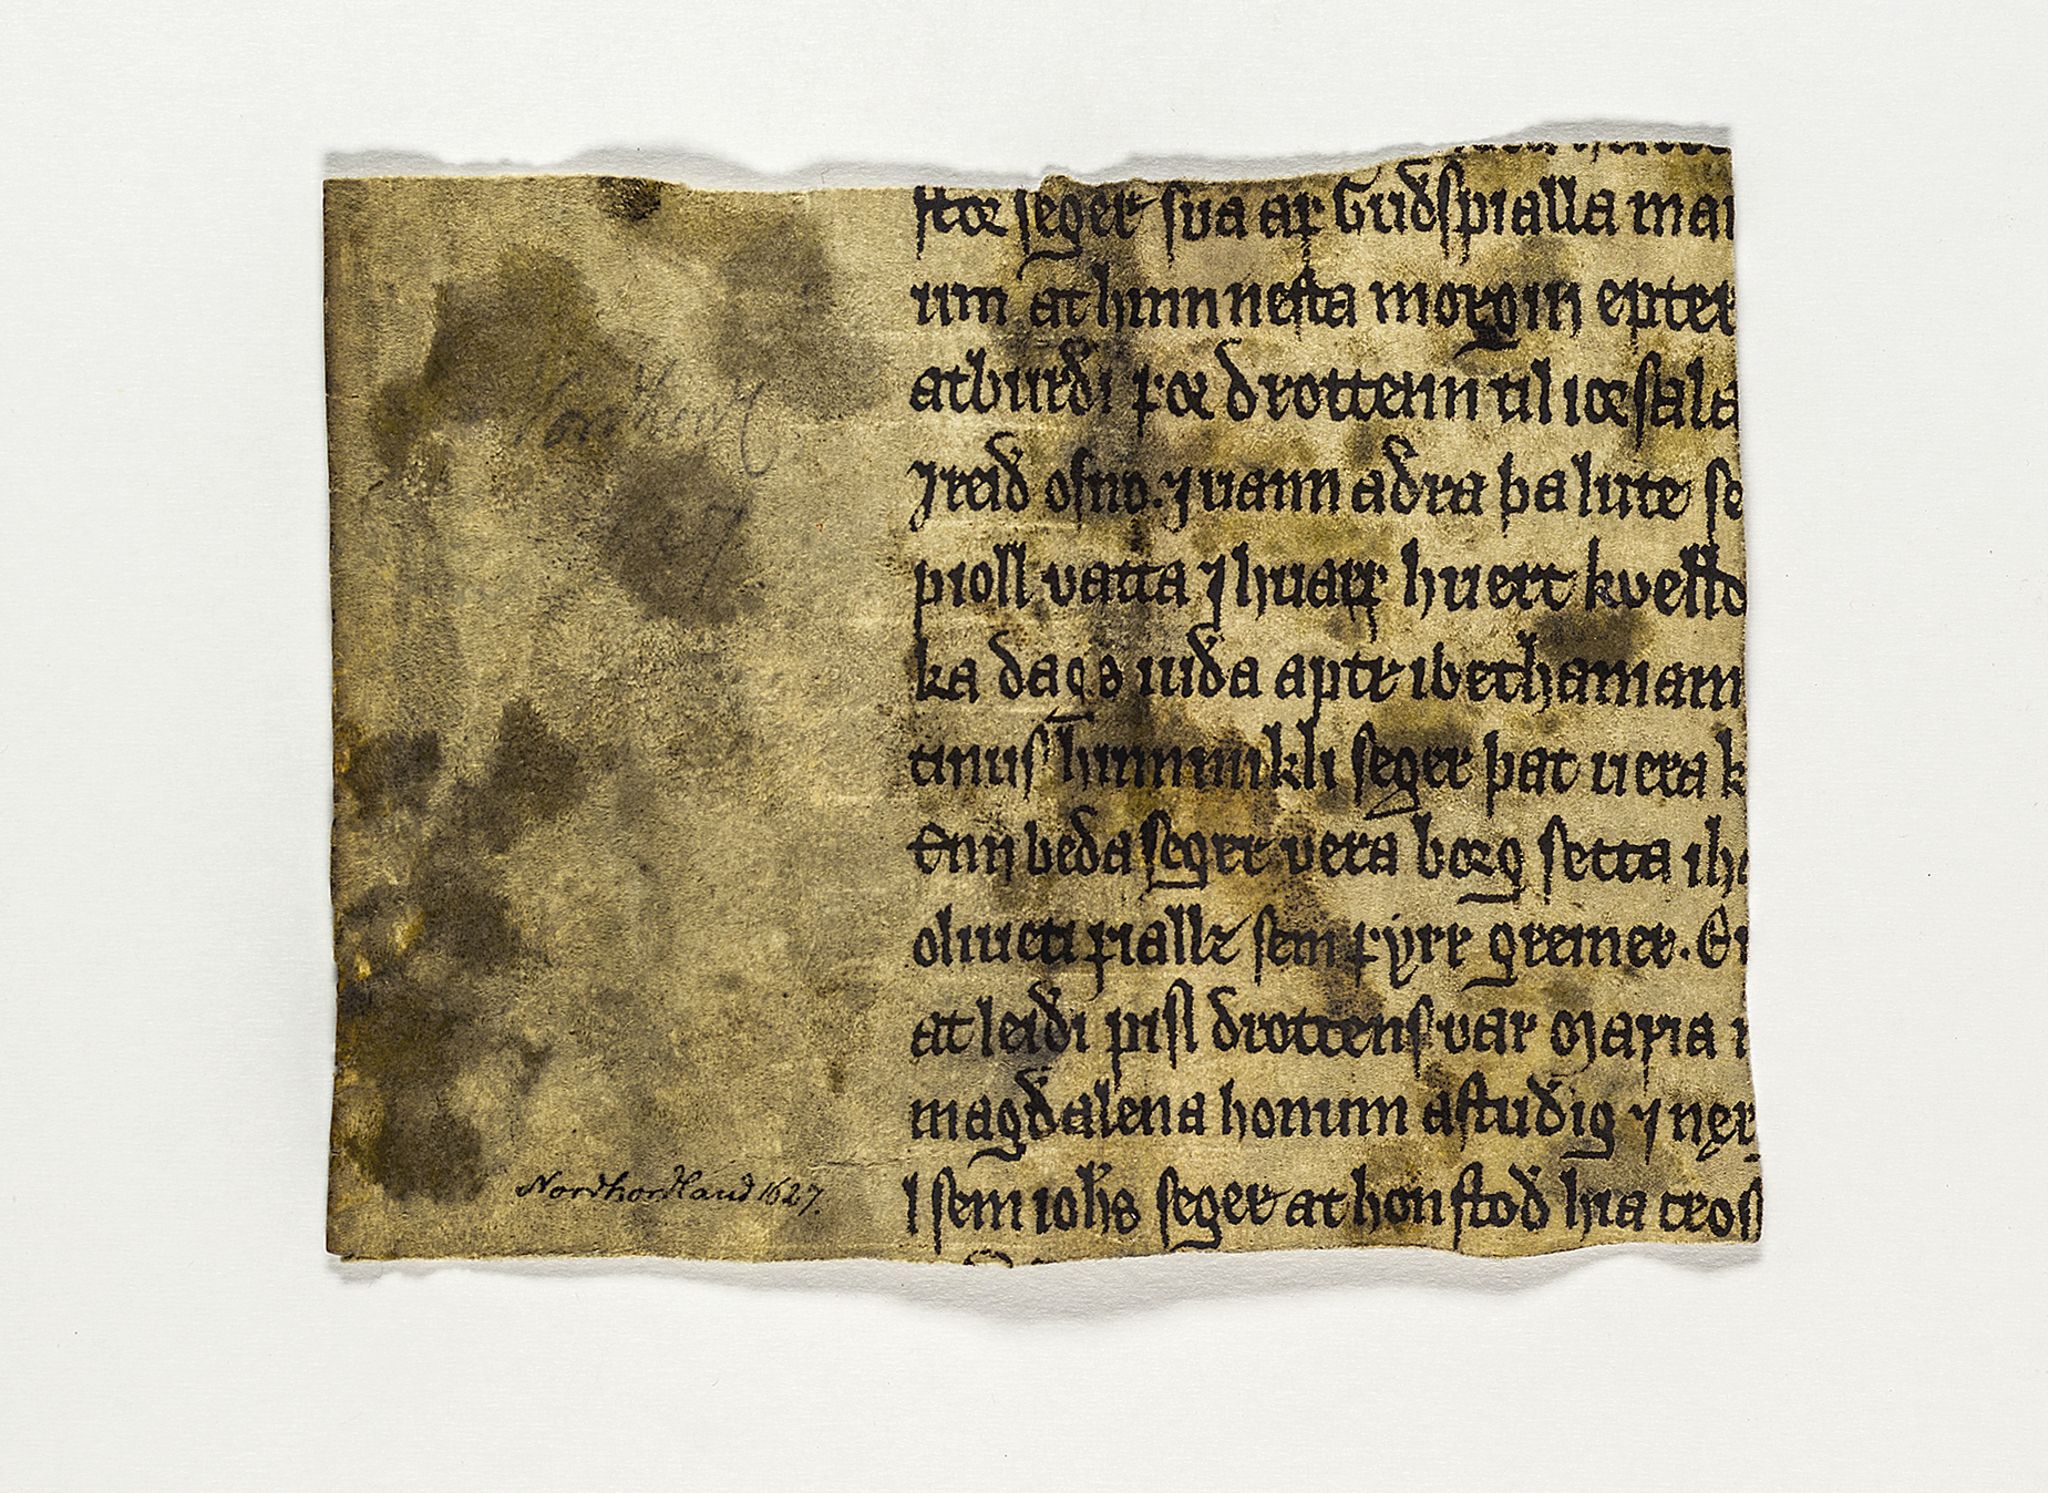 stoꝛ seger sva aꝼ Guðspialla man
um at hinn nesta morgin epter
atburði ꝼoꝛ drottenn til ioꝛsala
⁊ reið osno. ⁊ uann aðra þa lute se
pioll vatta ⁊ huarꝼ huert kvelld
ka dags iuða aptr ibethaniam
tinus hinn mikli seger þat uera k
Enn beda segir vera borg setta iho
oliueti ꝼialle sem ꝼyrr greiner. En
at leiði pisl drottens var Maria
magdalena honum astuðig ⁊ nęr
l sem iohs seger at hon stoð hia cros
Nordhord
Nordhordland 1627.